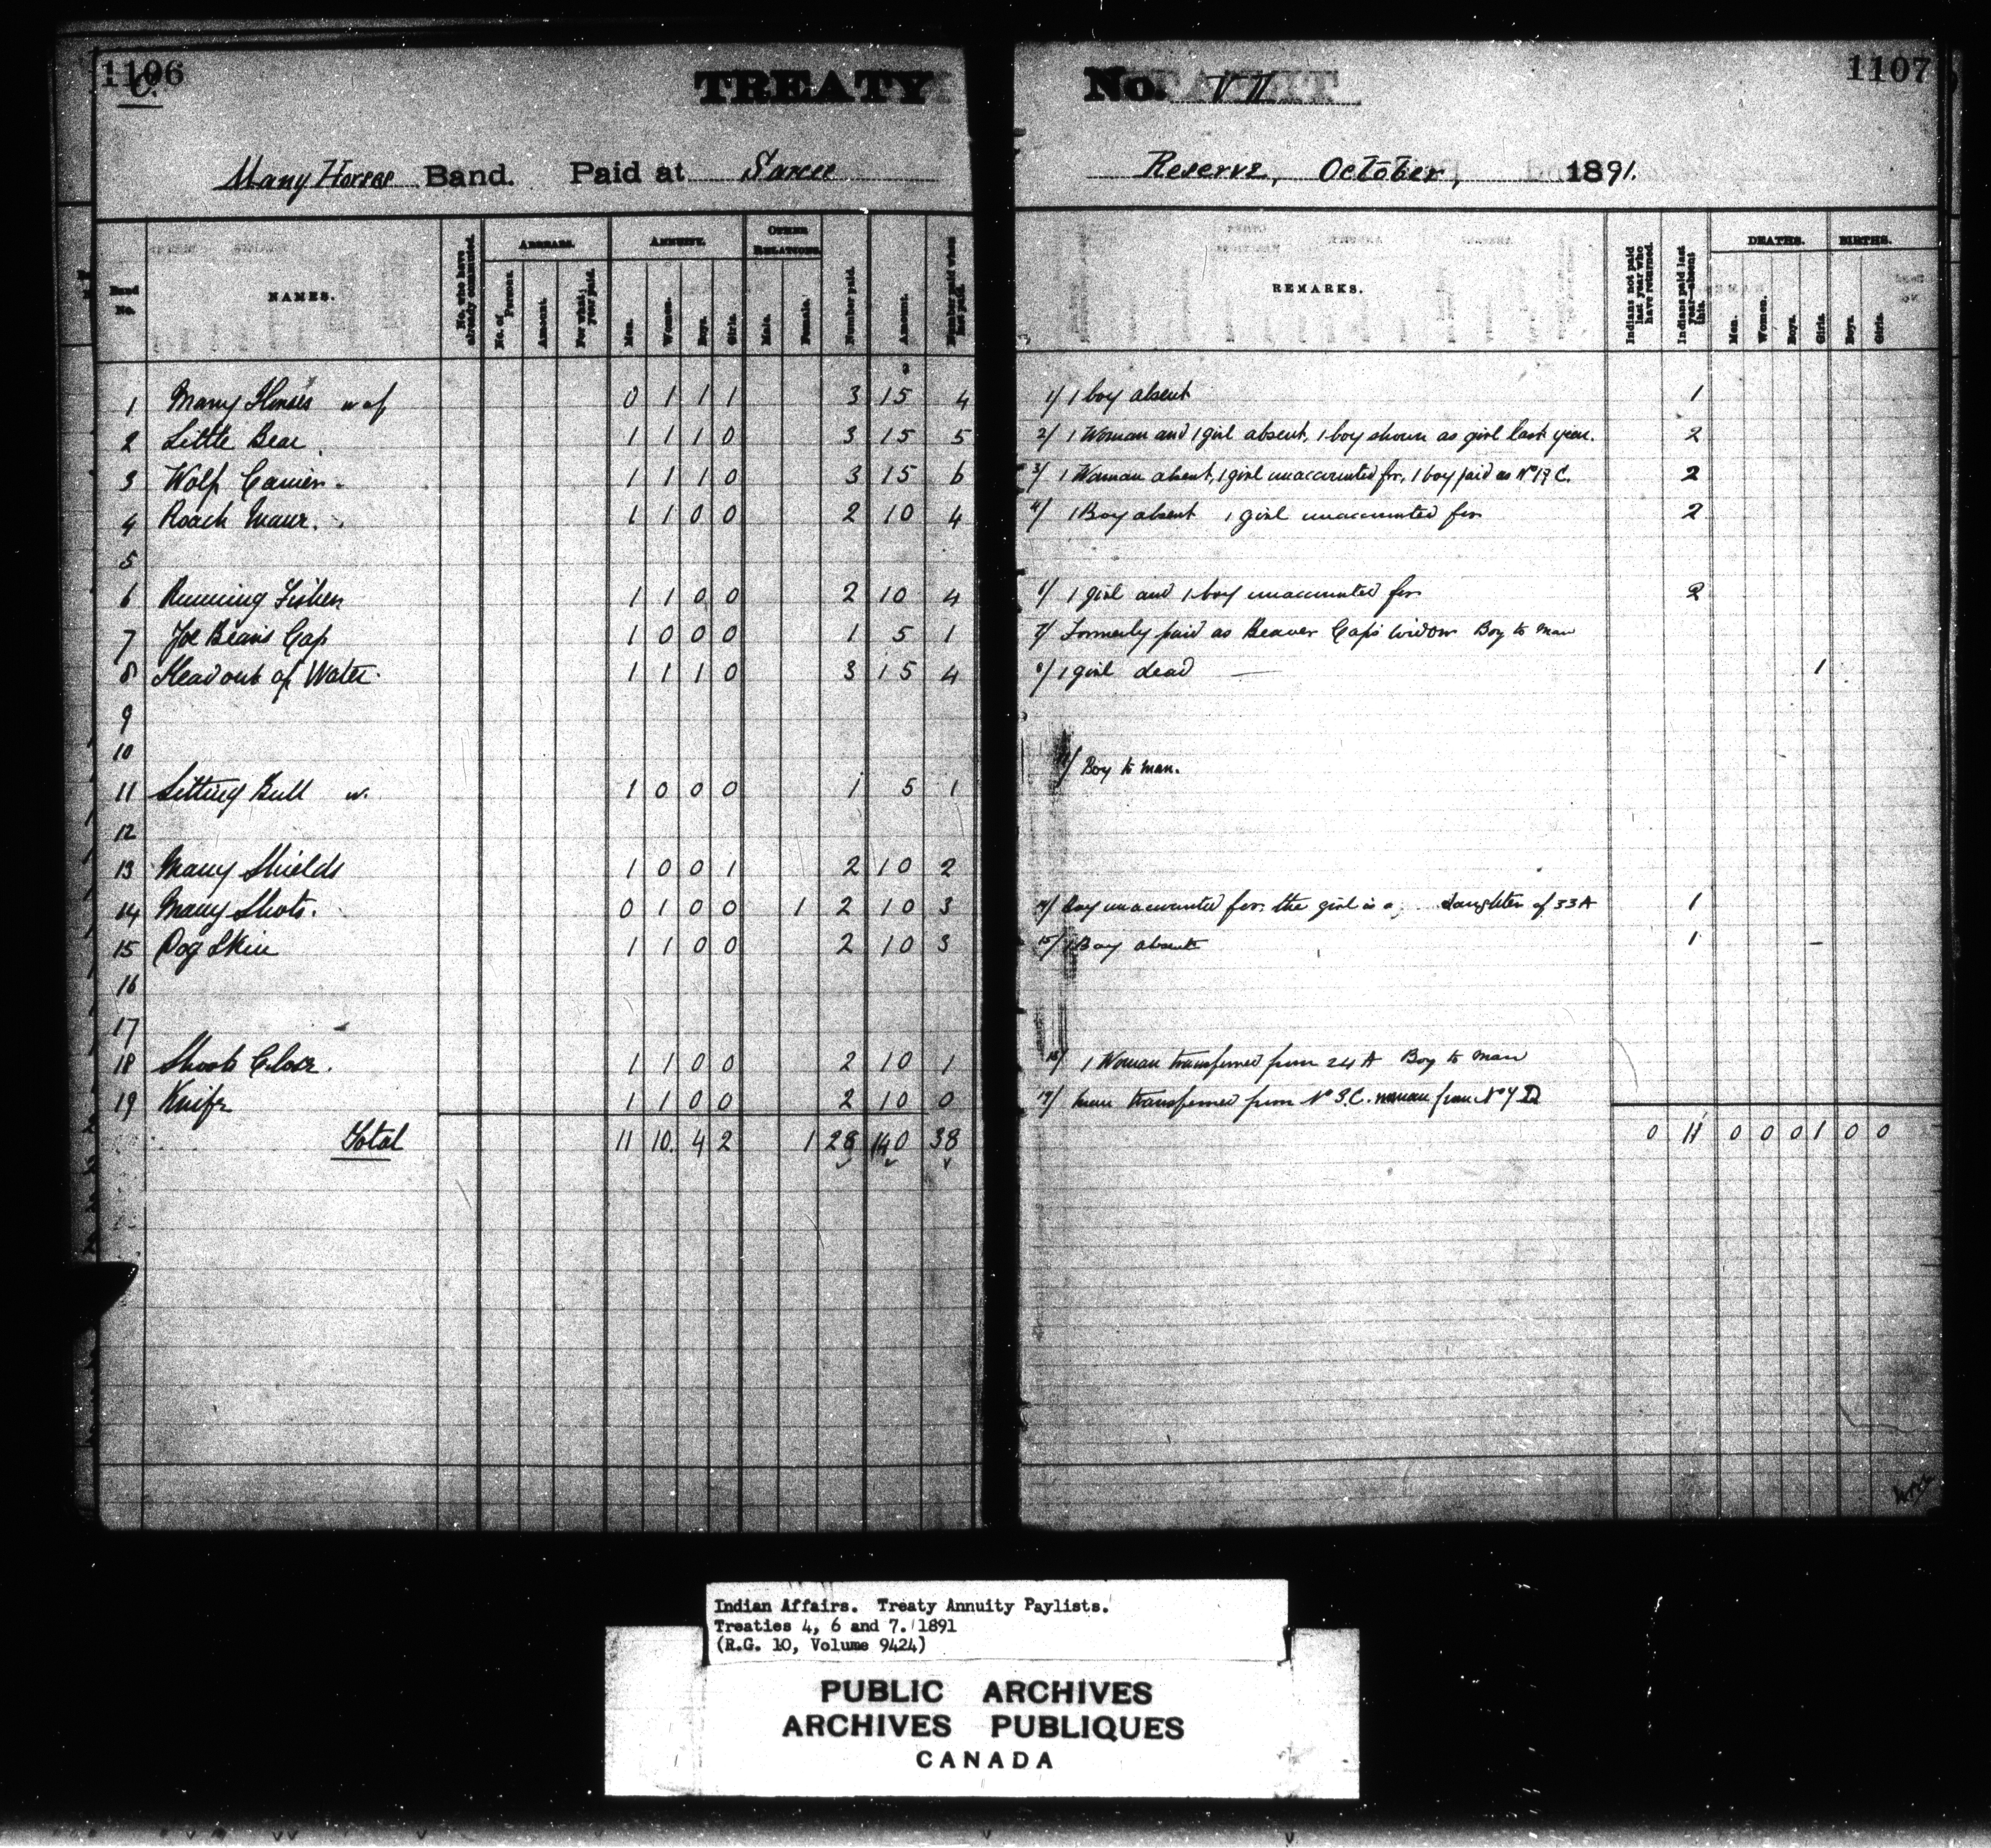 1106
C.
TREATY
Many Horses Band. Paid at Sarcee
Band No.
NAMES.
No. who have already commuted.
ARREARS.
No. of Persons.
Amount.
For what year paid.
ANNUITY.
Men.
Women.
Boys.
Girls.
OTHER RELATIONS.
Male.
Female.
Number paid.
Amount.
Number paid when last paid.
1 Many Horses w of 0 1 1 1 3 15 4
2 Little Bear 1 1 1 0 3 15 5
3 Wolf Carrier 1 1 1 0 3 15 6
4 Roach Mane. 1 1 0 0 2 10 4
5
6 Running Fisher 1 1 0 0 2 10 4
7 Joe Beaver Cap 1 0 0 0 1 5 1
8 Head out of Water 1 1 1 0 3 15 4
9
10
11 Sitting Bull w. 1 0 0 0 1 5 1
12
13 Many Shields 1 0 0 1 2 10 2
14 Many Shots. 0 1 0 0 1 2 10 3
15 Dog Skin 1 1 0 0 2 10 3
16
17
18 Shoots Close. 1 1 0 0 2 10 1
19 Knife 1 1 0 0 2 10 0
Total 11 10. 4 2 1 28 140 38
No. VII
1107
Reserve, October, 1891.
REMARKS.
Indians not paid last year who have returned.
Indians paid last year—absent this.
DEATHS.
Men.
Women.
Boys.
Girls.
BIRTHS.
Boys.
Girls.
1/ 1 boy absent 1
2/ 1 Woman and 1 girl absent, 1 boy shown as girl last year. 2
3/ 1 Woman absent, 1 girl unaccounted for, 1 boy paid as No 19 C. 2
4/ 1 Boy absent 1 girl unaccounted for 2
6/ 1 girl and 1 boy unaccounted for 2
7/ Formerly paid as Beaver Cap's widow Boy to Man
8/ 1 girl dead — 1
11/ Boy to man.
14/ Boy unaccounted for. the girl is a daughter of 33 A 1
15/ 1 Boy absent 1 –
18/ 1 Woman transferred from 24 A Boy to Man
19/ man transferred from No 3.C. woman from No 9 D
0 11 0 0 0 1 0 0
Indian Affairs. Treaty Annuity Paylists.
Treaties 4, 6 and 7. 1891
(R.G. 10, Volume 9424)
PUBLIC ARCHIVES
ARCHIVES PUBLIQUES
CANADA